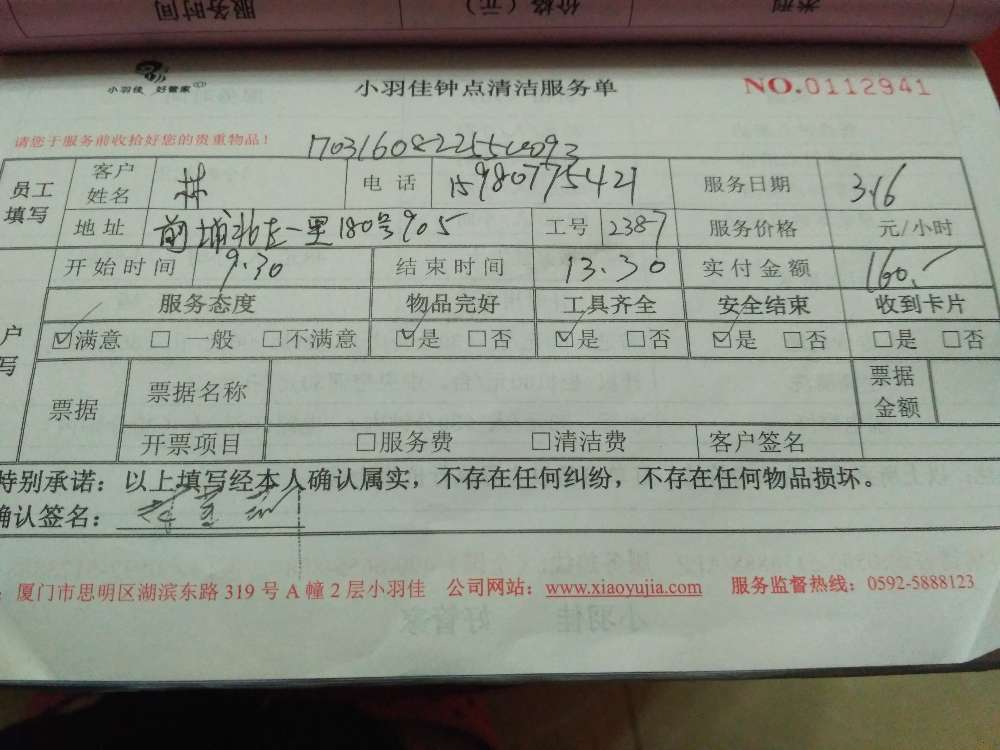 服务时间 价格（元） 类型
小羽佳 好管家
小羽佳钟点清洁服务单
NO.0112941
请您于服务前收拾好您的贵重物品！
员工填写 客户姓名 林 电话 15980775421 服务日期 3.16
地址 前埔北区一里180号905 工号 2387 服务价格 元/小时
开始时间 9.30 结束时间 13.30 实付金额 160.-
户写 服务态度 物品完好 工具齐全 安全结束 收到卡片
☑满意 □一般 □不满意 ☑是 □否 ☑是 □否 ☑是 □否 □是 □否
票据 票据名称 票据金额
开票项目 □服务费 □清洁费 客户签名
特别承诺：以上填写经本人确认属实，不存在任何纠纷，不存在任何物品损坏。
确认签名：
：厦门市思明区湖滨东路 319 号 A 幢 2 层小羽佳 公司网站：www.xiaoyujia.com 服务监督热线：0592-5888123
小羽佳 好管家